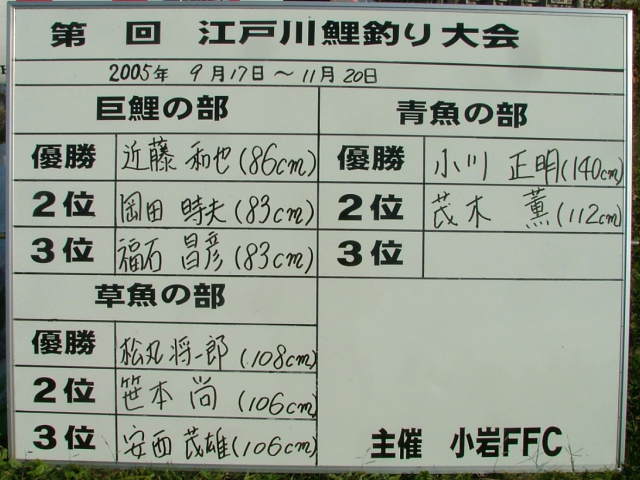 第 回 江戸川鯉釣り大会
2005年 9月17日～11月20日
巨鯉の部
優勝 近藤 和也(86cm)
2位 岡田 時夫(83cm)
3位 福石 昌彦(83cm)
青魚の部
優勝 小川 正明(140cm)
2位 茂木 薫(112cm)
3位
草魚の部
優勝 松丸将一郎(108cm)
2位 笹本 尚(106cm)
3位 安西 茂雄(106cm)
主催 小岩FFC